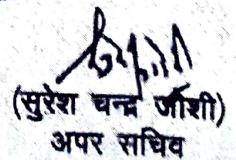 (सुरेश चन्द्र जोशी)
अपर सचिव